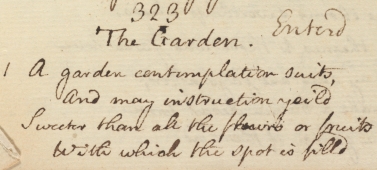 323
Enterd
The Garden.
1 A garden contemplation suits,
And may instruction yeild
Sweeter than all the flowrs or fruits
With which the spot is filld